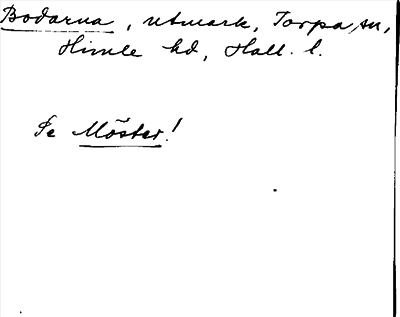 Bodarna, utmark, Torpa sn,
Himle hd, Hall. l.
Se Möster!